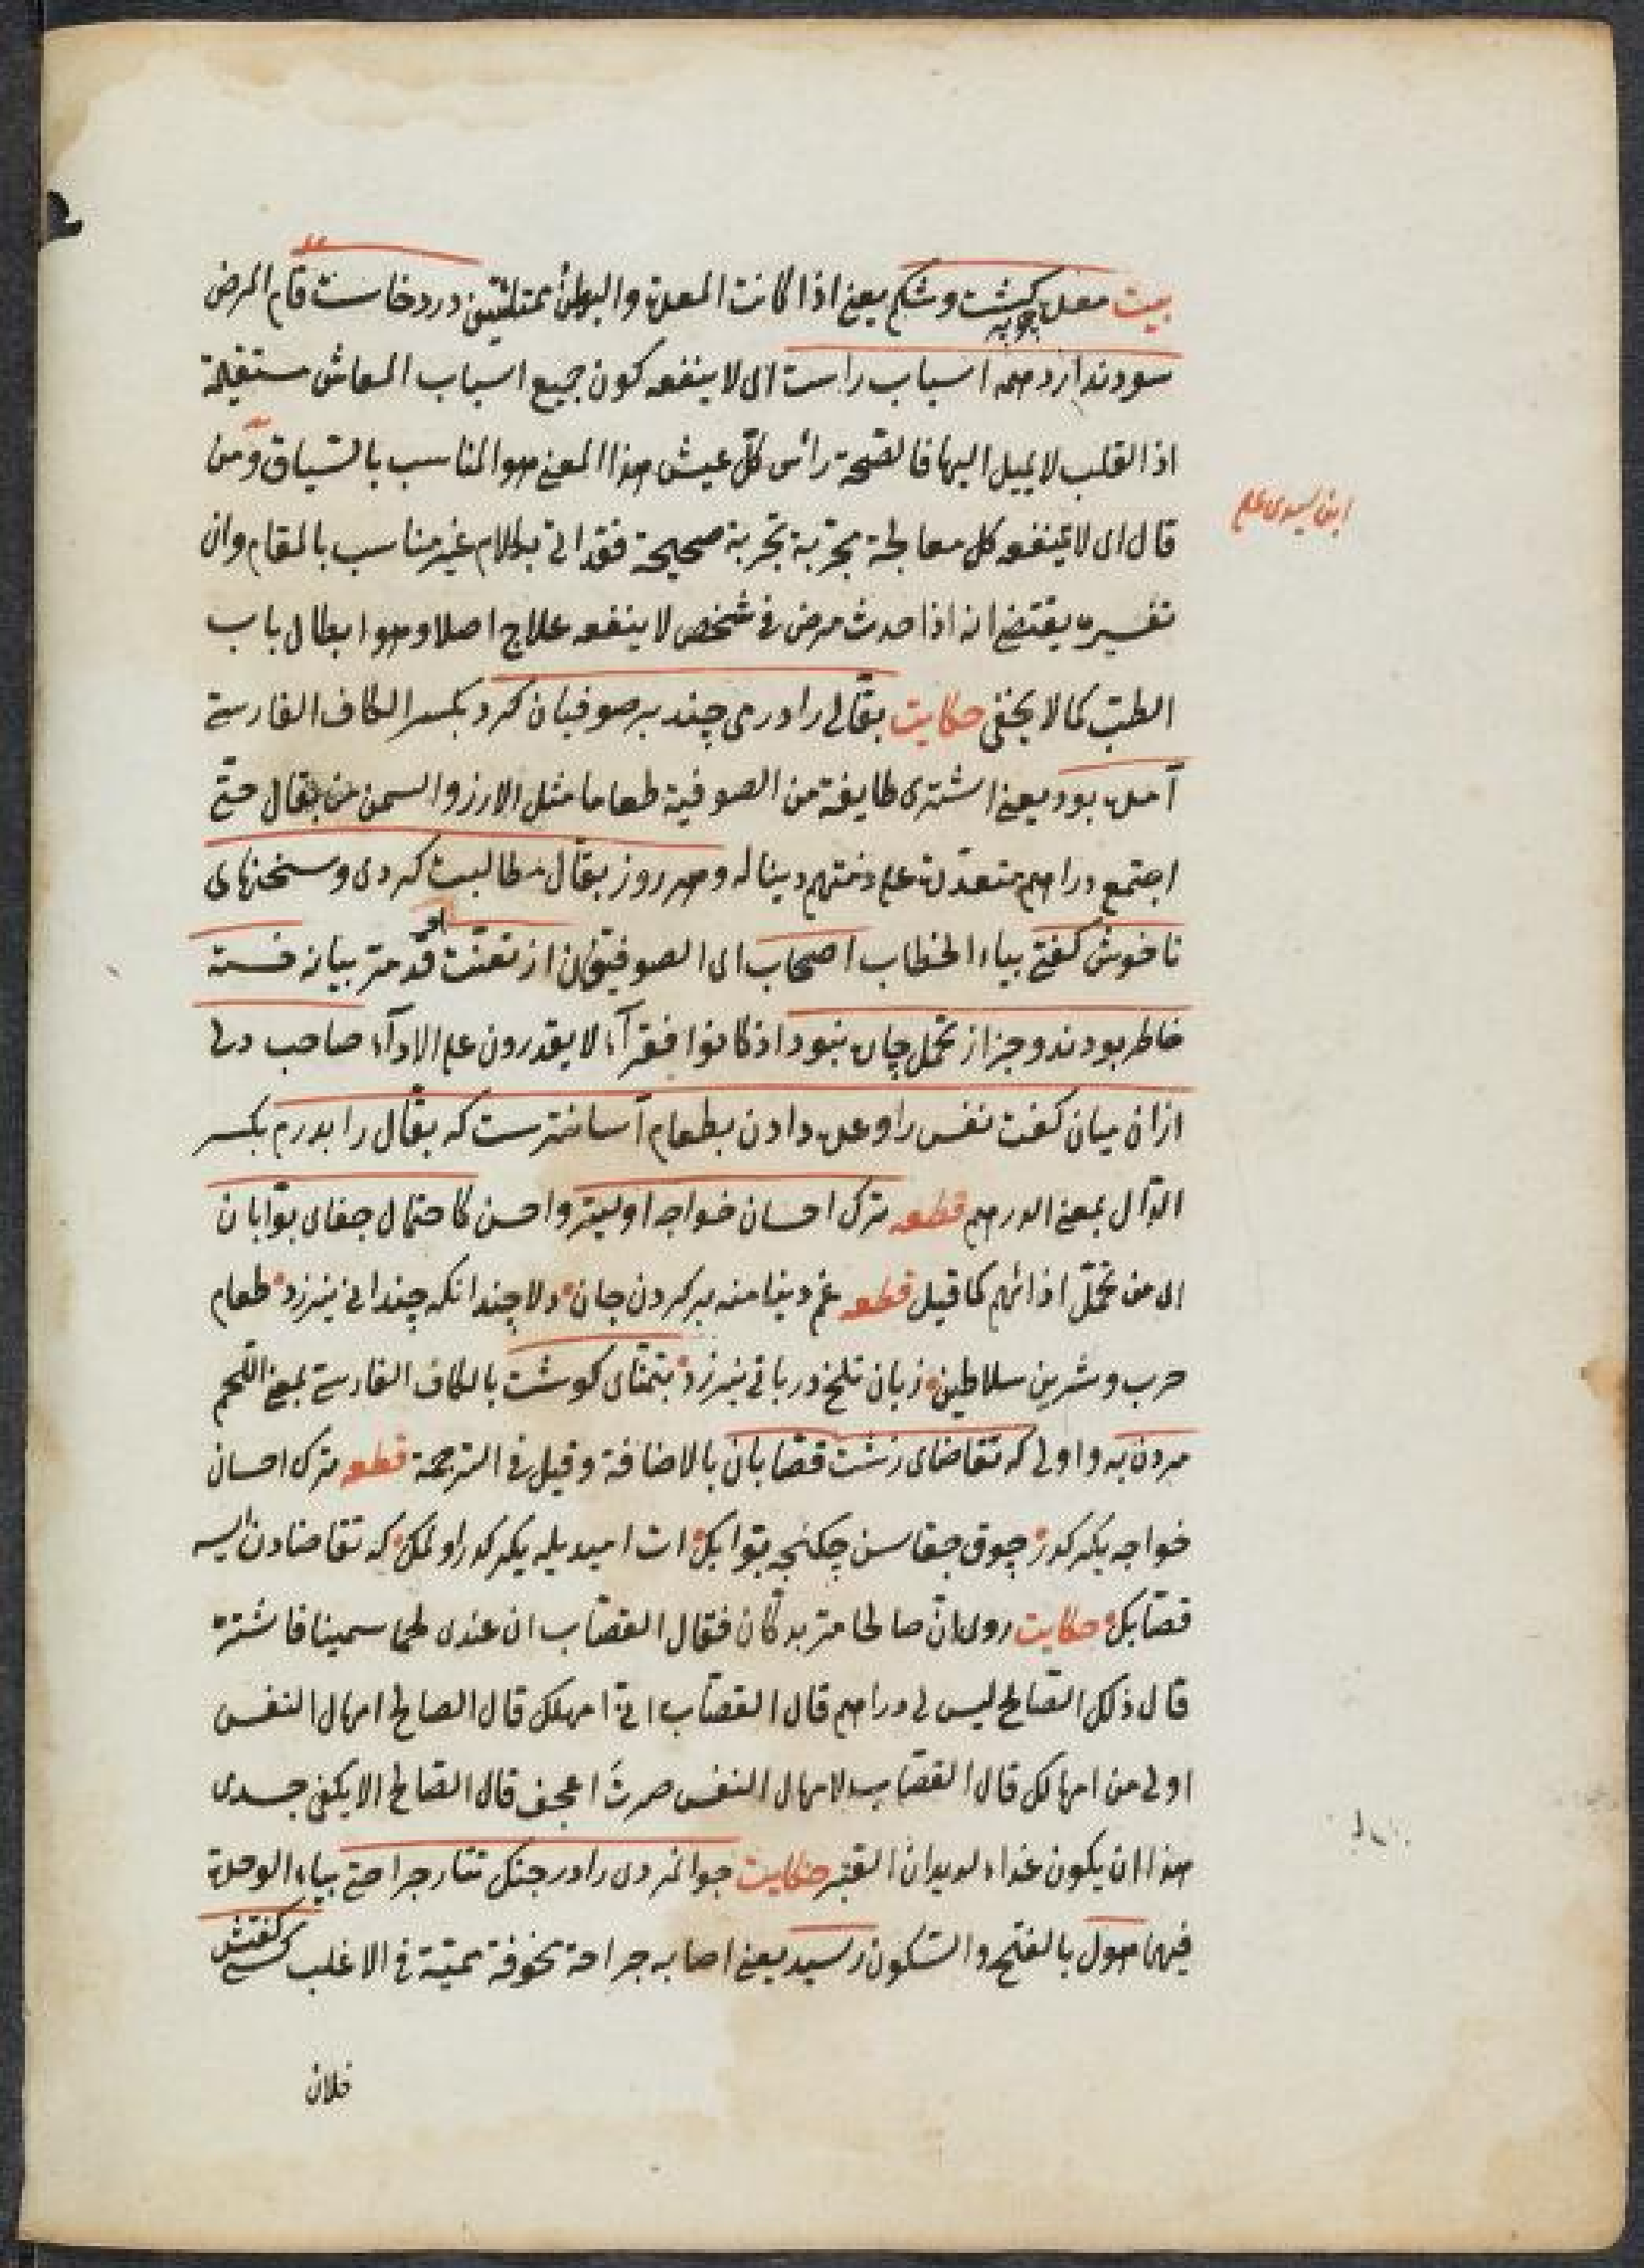 بيت معده چو پر كشت وشكم يعنى اذا كانت المعدة والبطن ممتلئتين درد خاست قام المرض
سود ندارد همه اسباب راست اى لا ينفعه كون جميع اسباب المعاش مستقيمة
اذ القلب لا يميل اليها فالصّحة رأس كلّ عيش هذا المعنى هو المناسب بالسّياق ومن
ابن سيدى على
قال اى لا ينفعه كل معالجة مجرّبة تجربة صحيحة فقد اتى بكلام غير مناسب بالمقام وان
تفسيره يقتضى انه اذا حدث مرض فى شخص لا ينفعه علاج اصلا وهو ابطال باب
الطبّ كما لا يخفى حكايت بقّالى را درمى چند بر صوفيان كرد بكسر الكاف الفارسية
آمده بود يعنى اشترى طايفة من الصوفية طعاما مثل الارز والسمن من بقال حتّى
اجتمع دراهم متعدّدة على ذمّتهم دينا له وهر روز بقّال مطالبت كردى وسخنهاى
ناخوش كفتى بياء الخطاب اصحاب اى الصوفيّون از تعنّت او قد مرّ بيانه خسته
خاطر بودند وجز از تحمّل چاره نبود اذ كانوا فقرآء لا يقدرون على الادآء صاحب دلى
ازان ميان كفت نفس را وعده دادن بطعام آسانترست كه بقّال را بدرم بكسر
الدّال بمعنى الدرهم قطعه ترك احسان خواجه اوليتر واحسن كاحتمال جفاى بوّابان
اى من تحمّل اذائهم كما قيل قطعه غم دنيا منه بر كردن جان دلا چندانكه چندانى نيرزد طعام
چرب وشرين سلاطين زبان تلخ دربانى نيرزد بتمنّاى كوشت بالكاف الفارسية بمعنى اللّحم
مردن به واولى كه تقاضاى زشت قصّابان بالاضافة وقيل فى الترجمة قطعه ترك احسان
خواجه يكركدر چوق جفاسن چكنجه بوّابك ات اميديله يكركدر اولمك كه تقاضادن ايسه
قصّابك حكايت روى انّ صالحا مرّ بدكّان فقال القصّاب ان عندى لحما سمينا فاشتره
قال ذلك الصّالح ليس لى دراهم قال القصّاب انّى امهلك قال الصالح امهال النفس
اولى من امهالك قال القصّاب لامهال النفس صرت اعجف قال الصّالح الا يكفى جسدى
هذا ان يكون غذاء لديدان القبر حكايت جوانمردى را در جنك تتار جراحتى بياء الوحدة
فيها هول بالفتح والسّكون رسيد يعنى اصابه جراحة مخوفة مميتة فى الاغلب كسى كفتش
فلان